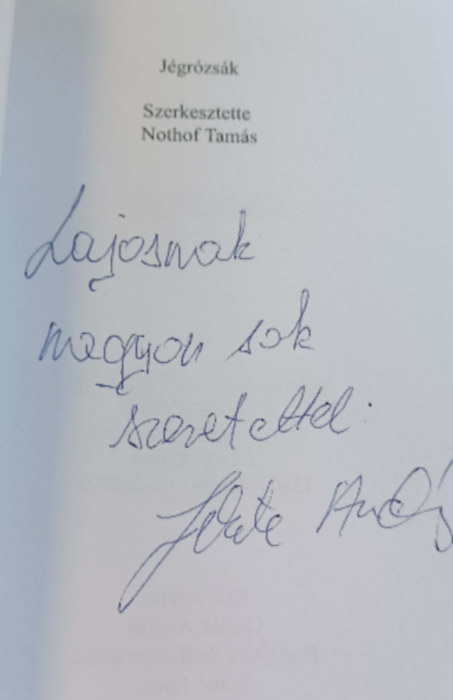 Jégrózsák
Szerkesztette
Nothof Tamás
Lajosnak
nagyon sok
szeretettel: